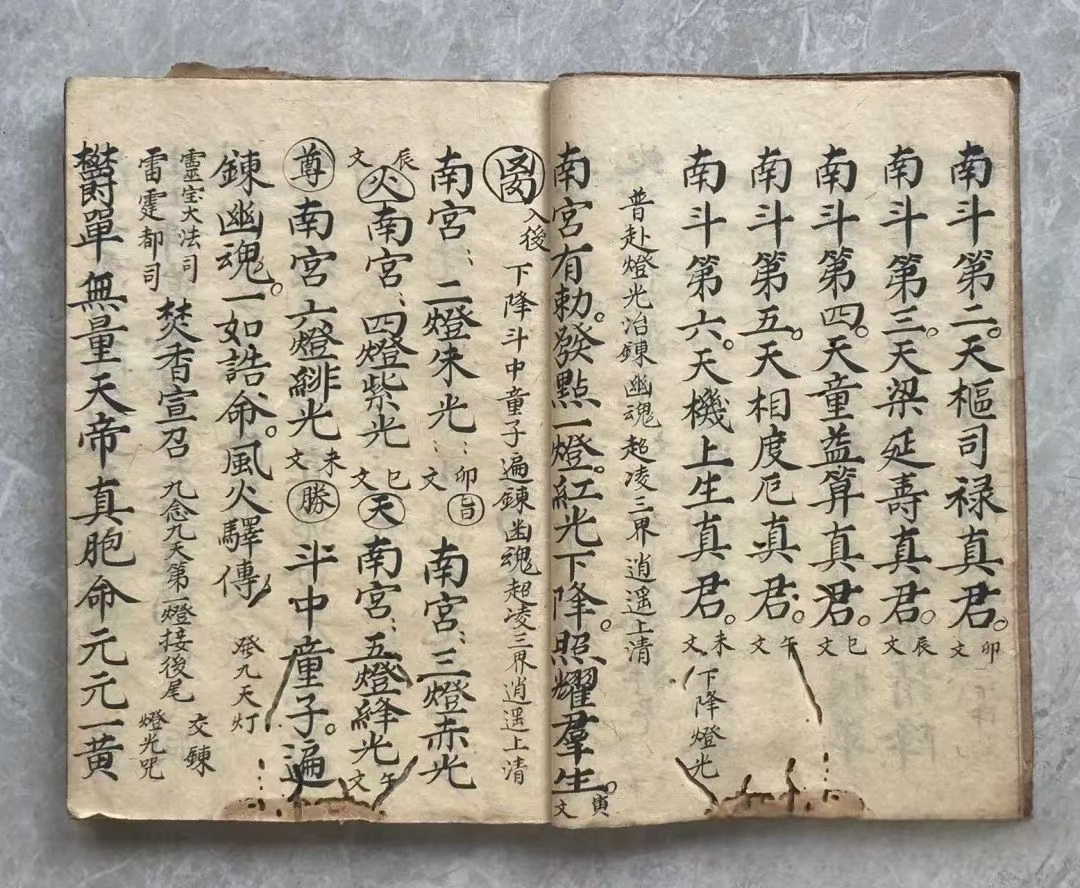 南斗第二。天樞司禄真君。卯文
南斗第三。天梁延壽真君。辰文
南斗第四。天童益算真君。巳文
南斗第五。天相度厄真君。午文
南斗第六。天機上生真君。未文 下降燈光
普赴燈光冶鍊幽魂超凌三界逍遥上清
南宮有勅。發點一燈。紅光下降。照耀羣生。寅文
入後下降斗中童子遍鍊幽魂超凌三界逍遥上清
南宮：二燈朱光：卯文 南宮：三燈赤光
辰文 火 南宮：四燈紫光 巳文 天 南宮：五燈絳光 午文
尊 南宮六燈緋光 未文 勝 斗中童子。遍
鍊幽魂。一如誥命。風火驛傳 發九天灯
靈宝大法司
雷霆都司
焚香宣召 九念九天第一燈接後尾 交鍊燈光咒
欝單無量天帝真胞命元元一黄